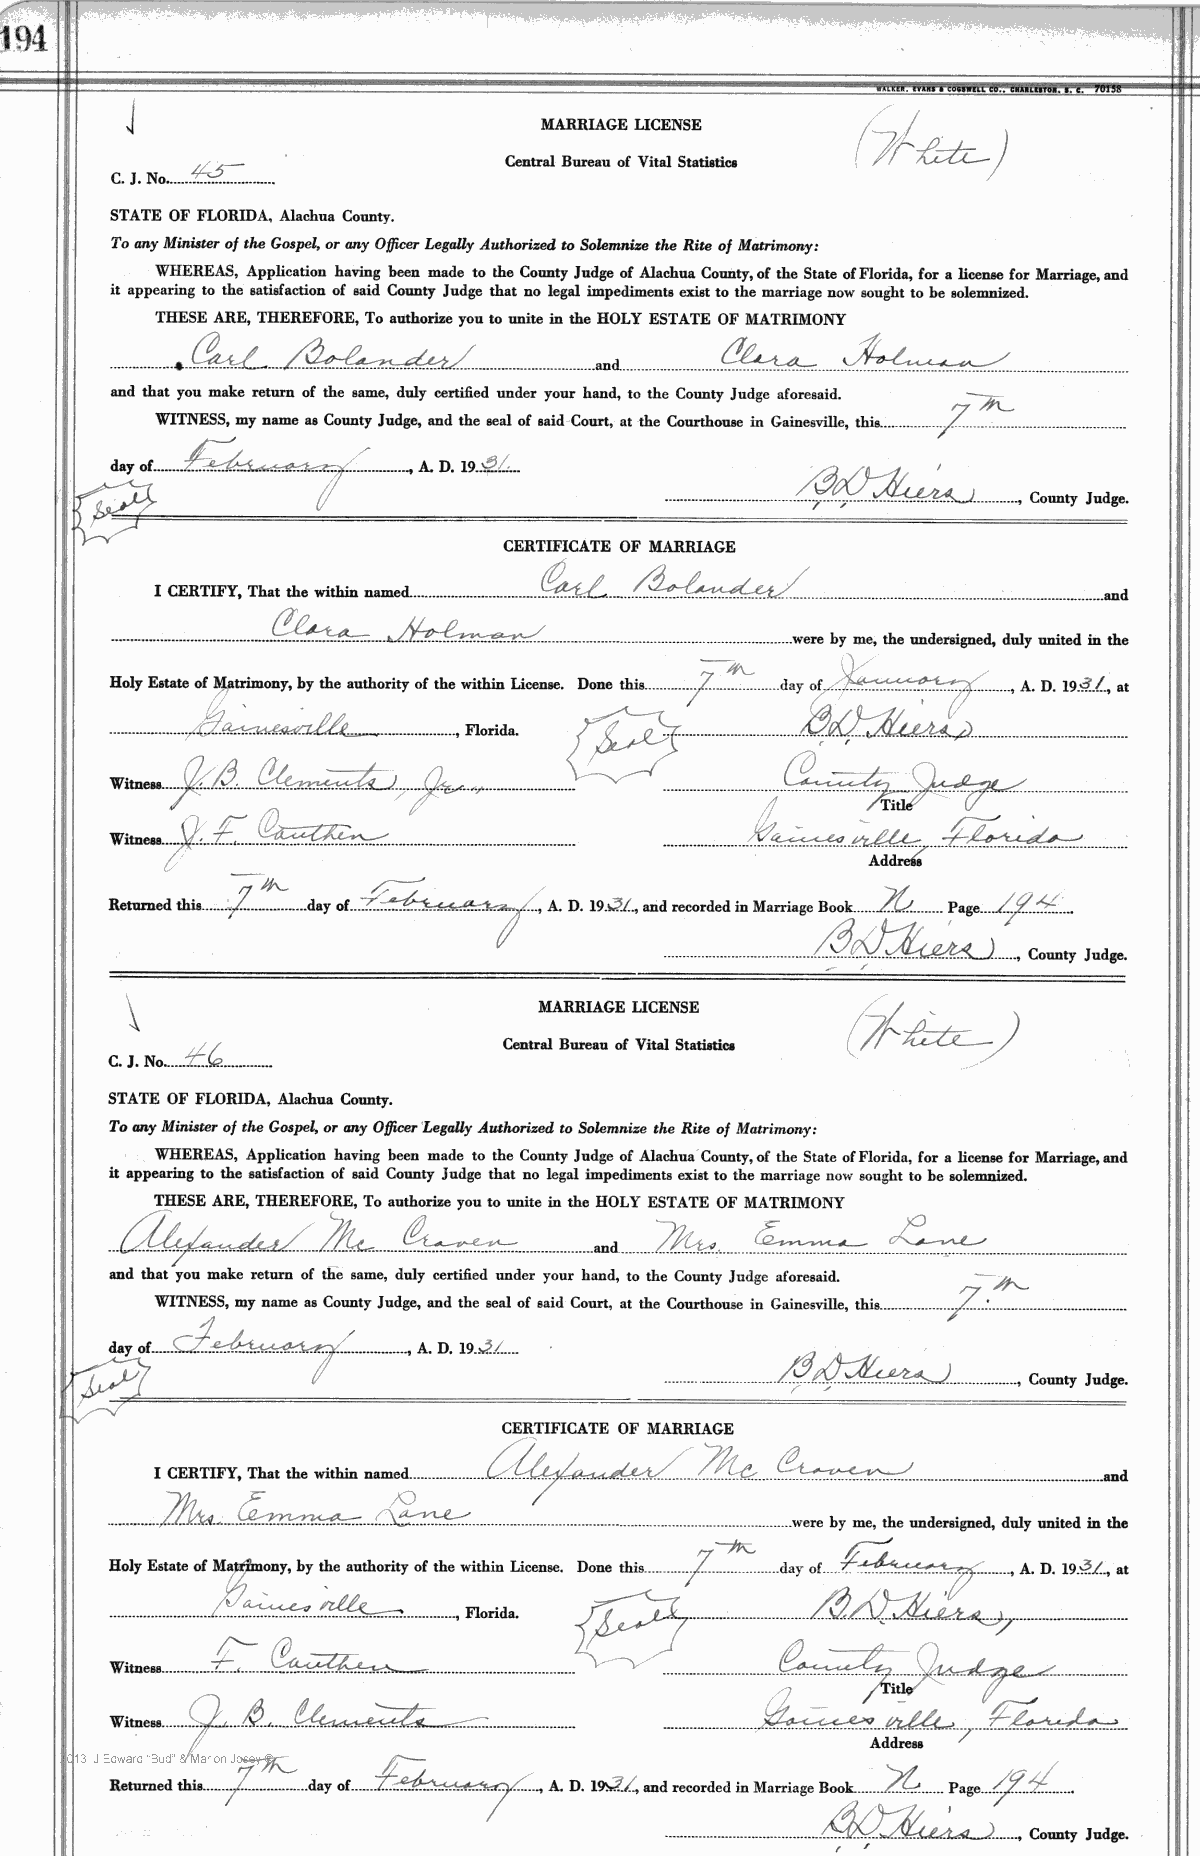 194
WALKER, EVANS & COGSWELL CO., CHARLESTON, S. C. 70158
MARRIAGE LICENSE
(White)
Central Bureau of Vital Statistics
C. J. No. 45
STATE OF FLORIDA, Alachua County.
To any Minister of the Gospel, or any Officer Legally Authorized to Solemnize the Rite of Matrimony:
WHEREAS, Application having been made to the County Judge of Alachua County, of the State of Florida, for a license for Marriage, and
it appearing to the satisfaction of said County Judge that no legal impediments exist to the marriage now sought to be solemnized.
THESE ARE, THEREFORE, To authorize you to unite in the HOLY ESTATE OF MATRIMONY
Carl Bolander and Clara Holman
and that you make return of the same, duly certified under your hand, to the County Judge aforesaid.
WITNESS, my name as County Judge, and the seal of said Court, at the Courthouse in Gainesville, this 7th
day of February, A. D. 1931.
Seal
B D Hiers, County Judge.
CERTIFICATE OF MARRIAGE
I CERTIFY, That the within named Carl Bolander and
Clara Holman were by me, the undersigned, duly united in the
Holy Estate of Matrimony, by the authority of the within License. Done this 7th day of January, A. D. 1931, at
Gainesville, Florida. Seal B. D. Hiers,
Witness J. B. Clements, Jr., County Judge
Title
Witness J. F. Cauthen Gainesville, Florida
Address
Returned this 7th day of February, A. D. 1931, and recorded in Marriage Book N Page 194.
B D Hiers, County Judge.
MARRIAGE LICENSE
(White)
Central Bureau of Vital Statistics
C. J. No. 46
STATE OF FLORIDA, Alachua County.
To any Minister of the Gospel, or any Officer Legally Authorized to Solemnize the Rite of Matrimony:
WHEREAS, Application having been made to the County Judge of Alachua County, of the State of Florida, for a license for Marriage, and
it appearing to the satisfaction of said County Judge that no legal impediments exist to the marriage now sought to be solemnized.
THESE ARE, THEREFORE, To authorize you to unite in the HOLY ESTATE OF MATRIMONY
Alexander Mc Craven and Mrs. Emma Lane
and that you make return of the same, duly certified under your hand, to the County Judge aforesaid.
WITNESS, my name as County Judge, and the seal of said Court, at the Courthouse in Gainesville, this 7th
day of February, A. D. 1931
Seal
B D Hiers, County Judge.
CERTIFICATE OF MARRIAGE
I CERTIFY, That the within named Alexander Mc Craven and
Mrs. Emma Lane were by me, the undersigned, duly united in the
Holy Estate of Matrimony, by the authority of the within License. Done this 7th day of February, A. D. 1931, at
Gainesville, Florida. Seal B. D. Hiers,
Witness F. Cauthen County Judge
Title
Witness J. B. Clements Gainesville, Florida
Address
013 J Edward "Bud" & Marion Josey ©
Returned this 7th day of February, A. D. 1931, and recorded in Marriage Book N Page 194.
B D Hiers, County Judge.